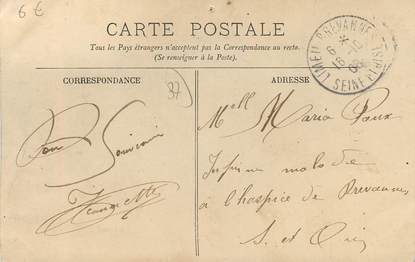 6 €
CARTE POSTALE
Tous les Pays étrangers n'acceptent pas la Correspondance au recto.
(Se renseigner à la Poste).
CORRESPONDANCE
ADRESSE
37
Bon Souvenir
Mell Maria
malade
à l'hospice de Brevannes
S. et Oise
LIMEIL BREVANNES
6 *
SEINE